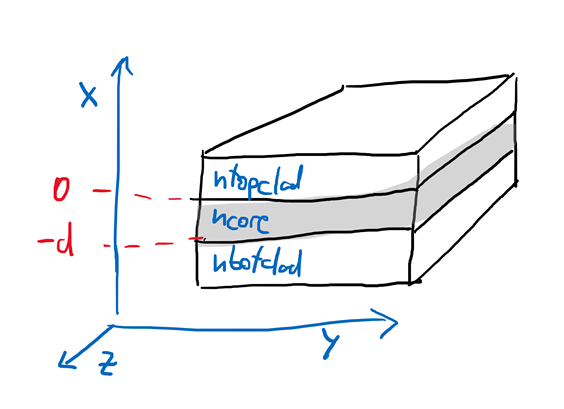 X
0
ntopclad
ncore
-d
nbotclad
Y
Z